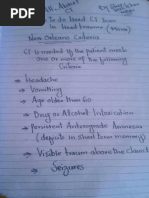 All About
CT
To do Head CT Scan
in Head trauma (Minor)
New Orleans Criteria
CT is needed if the patient meets
one or more of the following
Criteria
→ Headache
→ Vomitting
→ Age older than 60
→ Drug or Alcohol Intoxication
→ Persistent Anterograde Amnesia
(deficits in short term memory)
→ Visible trauma above the Clavicle
→ Seizures